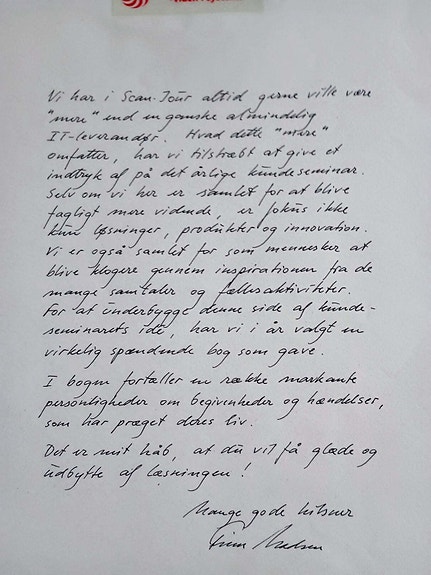 Vi har i Scan·Jour altid gerne ville være
"mere" end en ganske almindelig
IT-leverandør. Hvad dette "mere"
omfatter, har vi tilstræbt at give et
indtryk af på det årlige kundeseminar.
Selv om vi her er samlet for at blive
fagligt mere vidende, er fokus ikke
kun løsninger, produkter og innovation.
Vi er også samlet for som mennesker at
blive klogere gennem inspirationen fra de
mange samtaler og fællesaktiviteter.
For at underbygge denne side af kunde-
seminarets idé, har vi i år valgt en
virkelig spændende bog som gave.
I bogen fortæller en række markante
personligheder om begivenheder og hændelser,
som har præget deres liv.
Det er mit håb, at du vil få glæde og
udbytte af læsningen!
Mange gode hilsner
Madsen